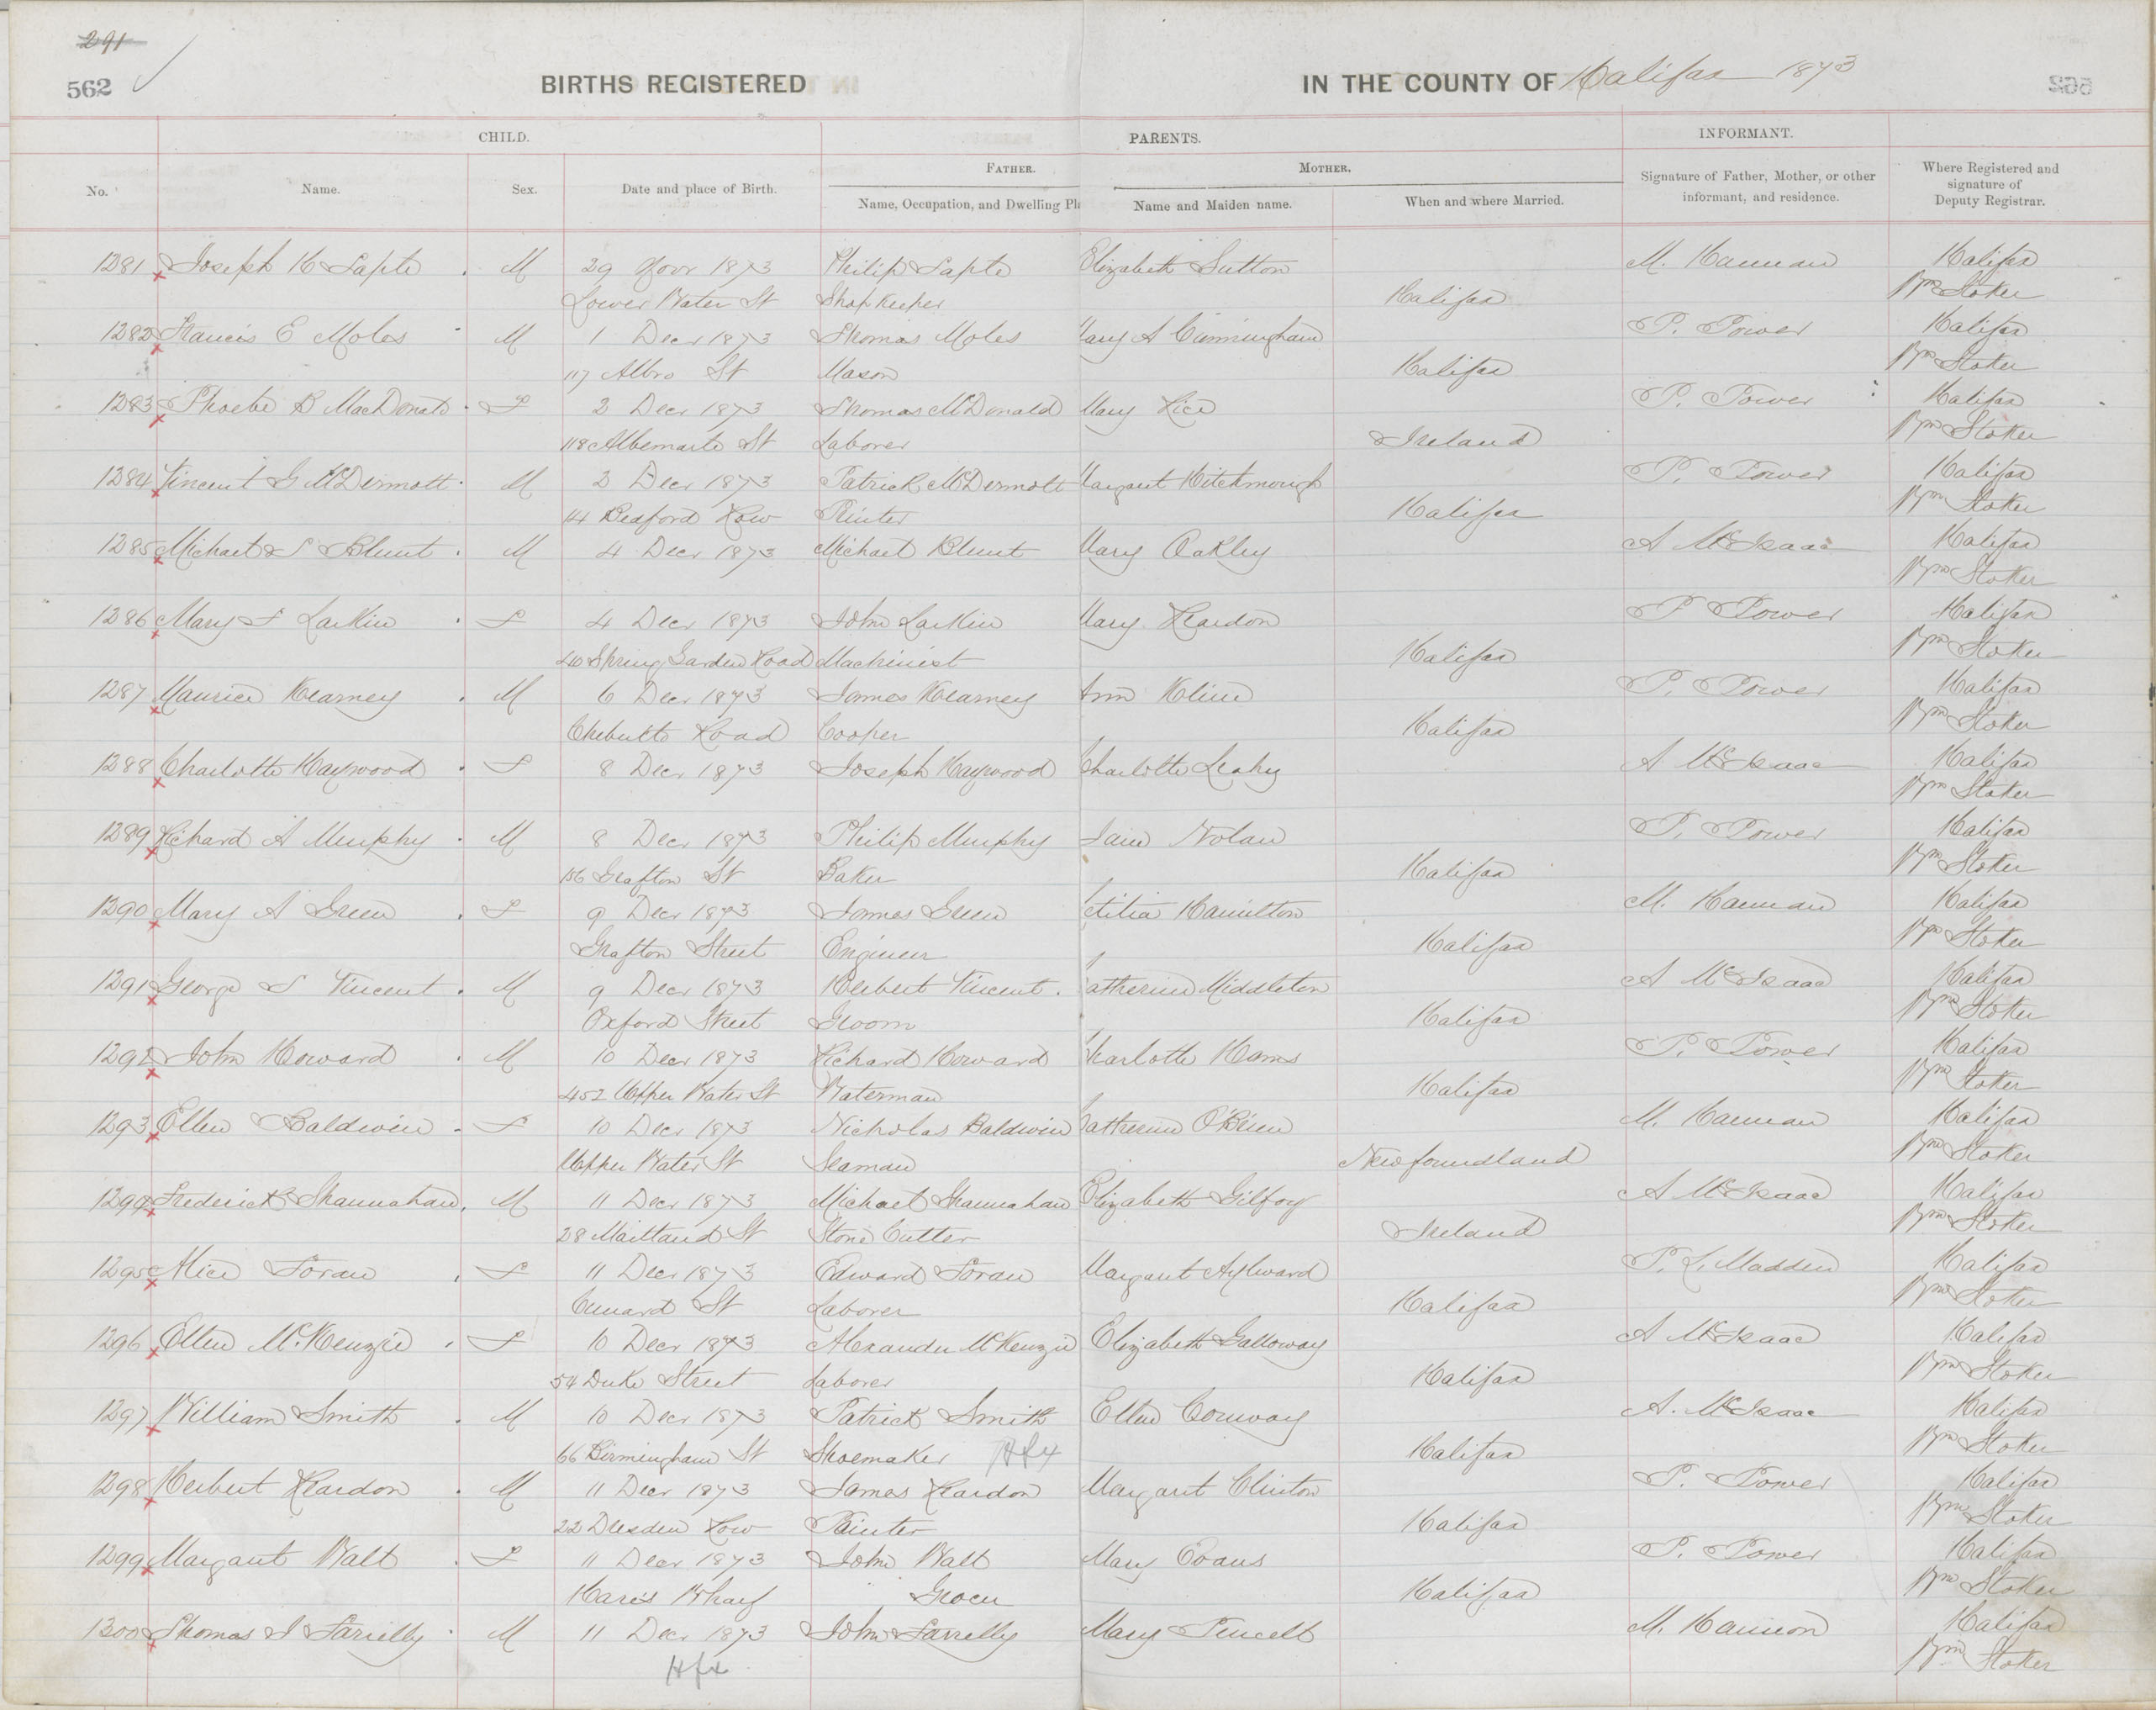 291
562
BIRTHS REGISTERED IN THE COUNTY OF Halifax 1873
CHILD. PARENTS. INFORMANT.
No. Name. Sex. Date and place of Birth. FATHER. Name, Occupation, and Dwelling Pl MOTHER. Name and Maiden name. When and where Married. Signature of Father, Mother, or other informant, and residence. Where Registered and signature of Deputy Registrar.
1281 Joseph H Sapte M 29 Novr 1873 Philip Sapte Elizabeth Sutton M. Hannan Halifax
Lower Water St Shop Keeper Halifax Wm Stoker
1282 Francis E Moles M 1 Decr 1873 Thomas Moles Mary A Cunningham P. Power Halifax
117 Albro St Mason Halifax Wm Stoker
1283 Phoebe B MacDonald F 2 Decr 1873 Thomas McDonald Mary Rice P. Power Halifax
118 Albemarle St Laborer Ireland Wm Stoker
1284 Vincent G McDermott M 2 Decr 1873 Patrick McDermott Margaret Hitchmough P. Power Halifax
114 Bedford Row Printer Halifax Wm Stoker
1285 Michael S Blunt M 4 Decr 1873 Michael Blunt Mary Oakley A McIsaac Halifax
Wm Stoker
1286 Mary F Larkin F 4 Decr 1873 John Larkin Mary Reardon P Power Halifax
40 Spring Garden Road Machinist Halifax Wm Stoker
1287 Maurice Kearney M 6 Decr 1873 James Kearney Ann Kline P. Power Halifax
Chebucto Road Cooper Halifax Wm Stoker
1288 Charlotte Haywood F 8 Decr 1873 Joseph Haywood Charlotte Leahy A McIsaac Halifax
Wm Stoker
1289 Richard A Murphy M 8 Decr 1873 Philip Murphy Jane Nolan P. Power Halifax
156 Grafton St Baker Halifax Wm Stoker
1290 Mary A Green F 9 Decr 1873 James Green Letitia Hamilton M. Hannan Halifax
Grafton Street Engineer Halifax Wm Stoker
1291 George S Vincent M 9 Decr 1873 Herbert Vincent Catherine Middleton A McIsaac Halifax
Oxford Street Groom Halifax Wm Stoker
1292 John Howard M 10 Decr 1873 Richard Howard Charlotte Hams P. Power Halifax
452 Upper Water St Waterman Halifax Wm Stoker
1293 Ellen Baldwin F 10 Decr 1873 Nicholas Baldwin Catherine O'Brien M. Hannan Halifax
Upper Water St Seaman Newfoundland Wm Stoker
1294 Frederick Shannahan M 11 Decr 1873 Michael Shannahan Elizabeth Gilfoy A McIsaac Halifax
28 Maitland St Stone Cutter Ireland Wm Stoker
1295 Alice Foran F 11 Decr 1873 Edward Foran Margaret Aylward P. L. Madden Halifax
Cunard St Laborer Halifax Wm Stoker
1296 Ellen McKenzie F 10 Decr 1873 Alexander McKenzie Elizabeth Galloway A McIsaac Halifax
54 Duke Street Laborer Halifax Wm Stoker
1297 William Smith M 10 Decr 1873 Patrick Smith Ellen Conway A. McIsaac Halifax
66 Birmingham St Shoemaker Hfx Halifax Wm Stoker
1298 Herbert Reardon M 11 Decr 1873 James Reardon Margaret Clinton P. Power Halifax
22 Dresden Row Painter Halifax Wm Stoker
1299 Margaret Walt F 11 Decr 1873 John Walt Mary Evans P. Power Halifax
Hare's Wharf Grocer Halifax Wm Stoker
1300 Thomas J Farrelly M 11 Decr 1873 John Farrelly Mary Purcell M. Hannon Halifax
Hfx Wm Stoker